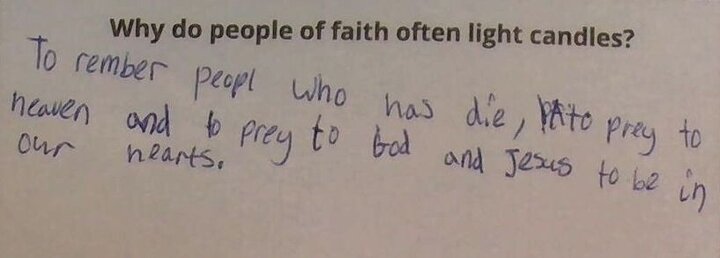 Why do people of faith often light candles?
To rember peopl who has die, to prey to
heaven and to prey to God and Jesus to be in
our hearts.